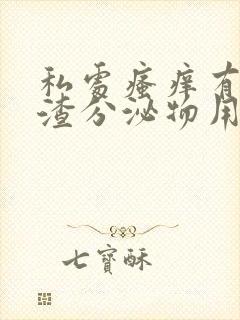 私處瘙痒有
渣分泌物用
七寶酥